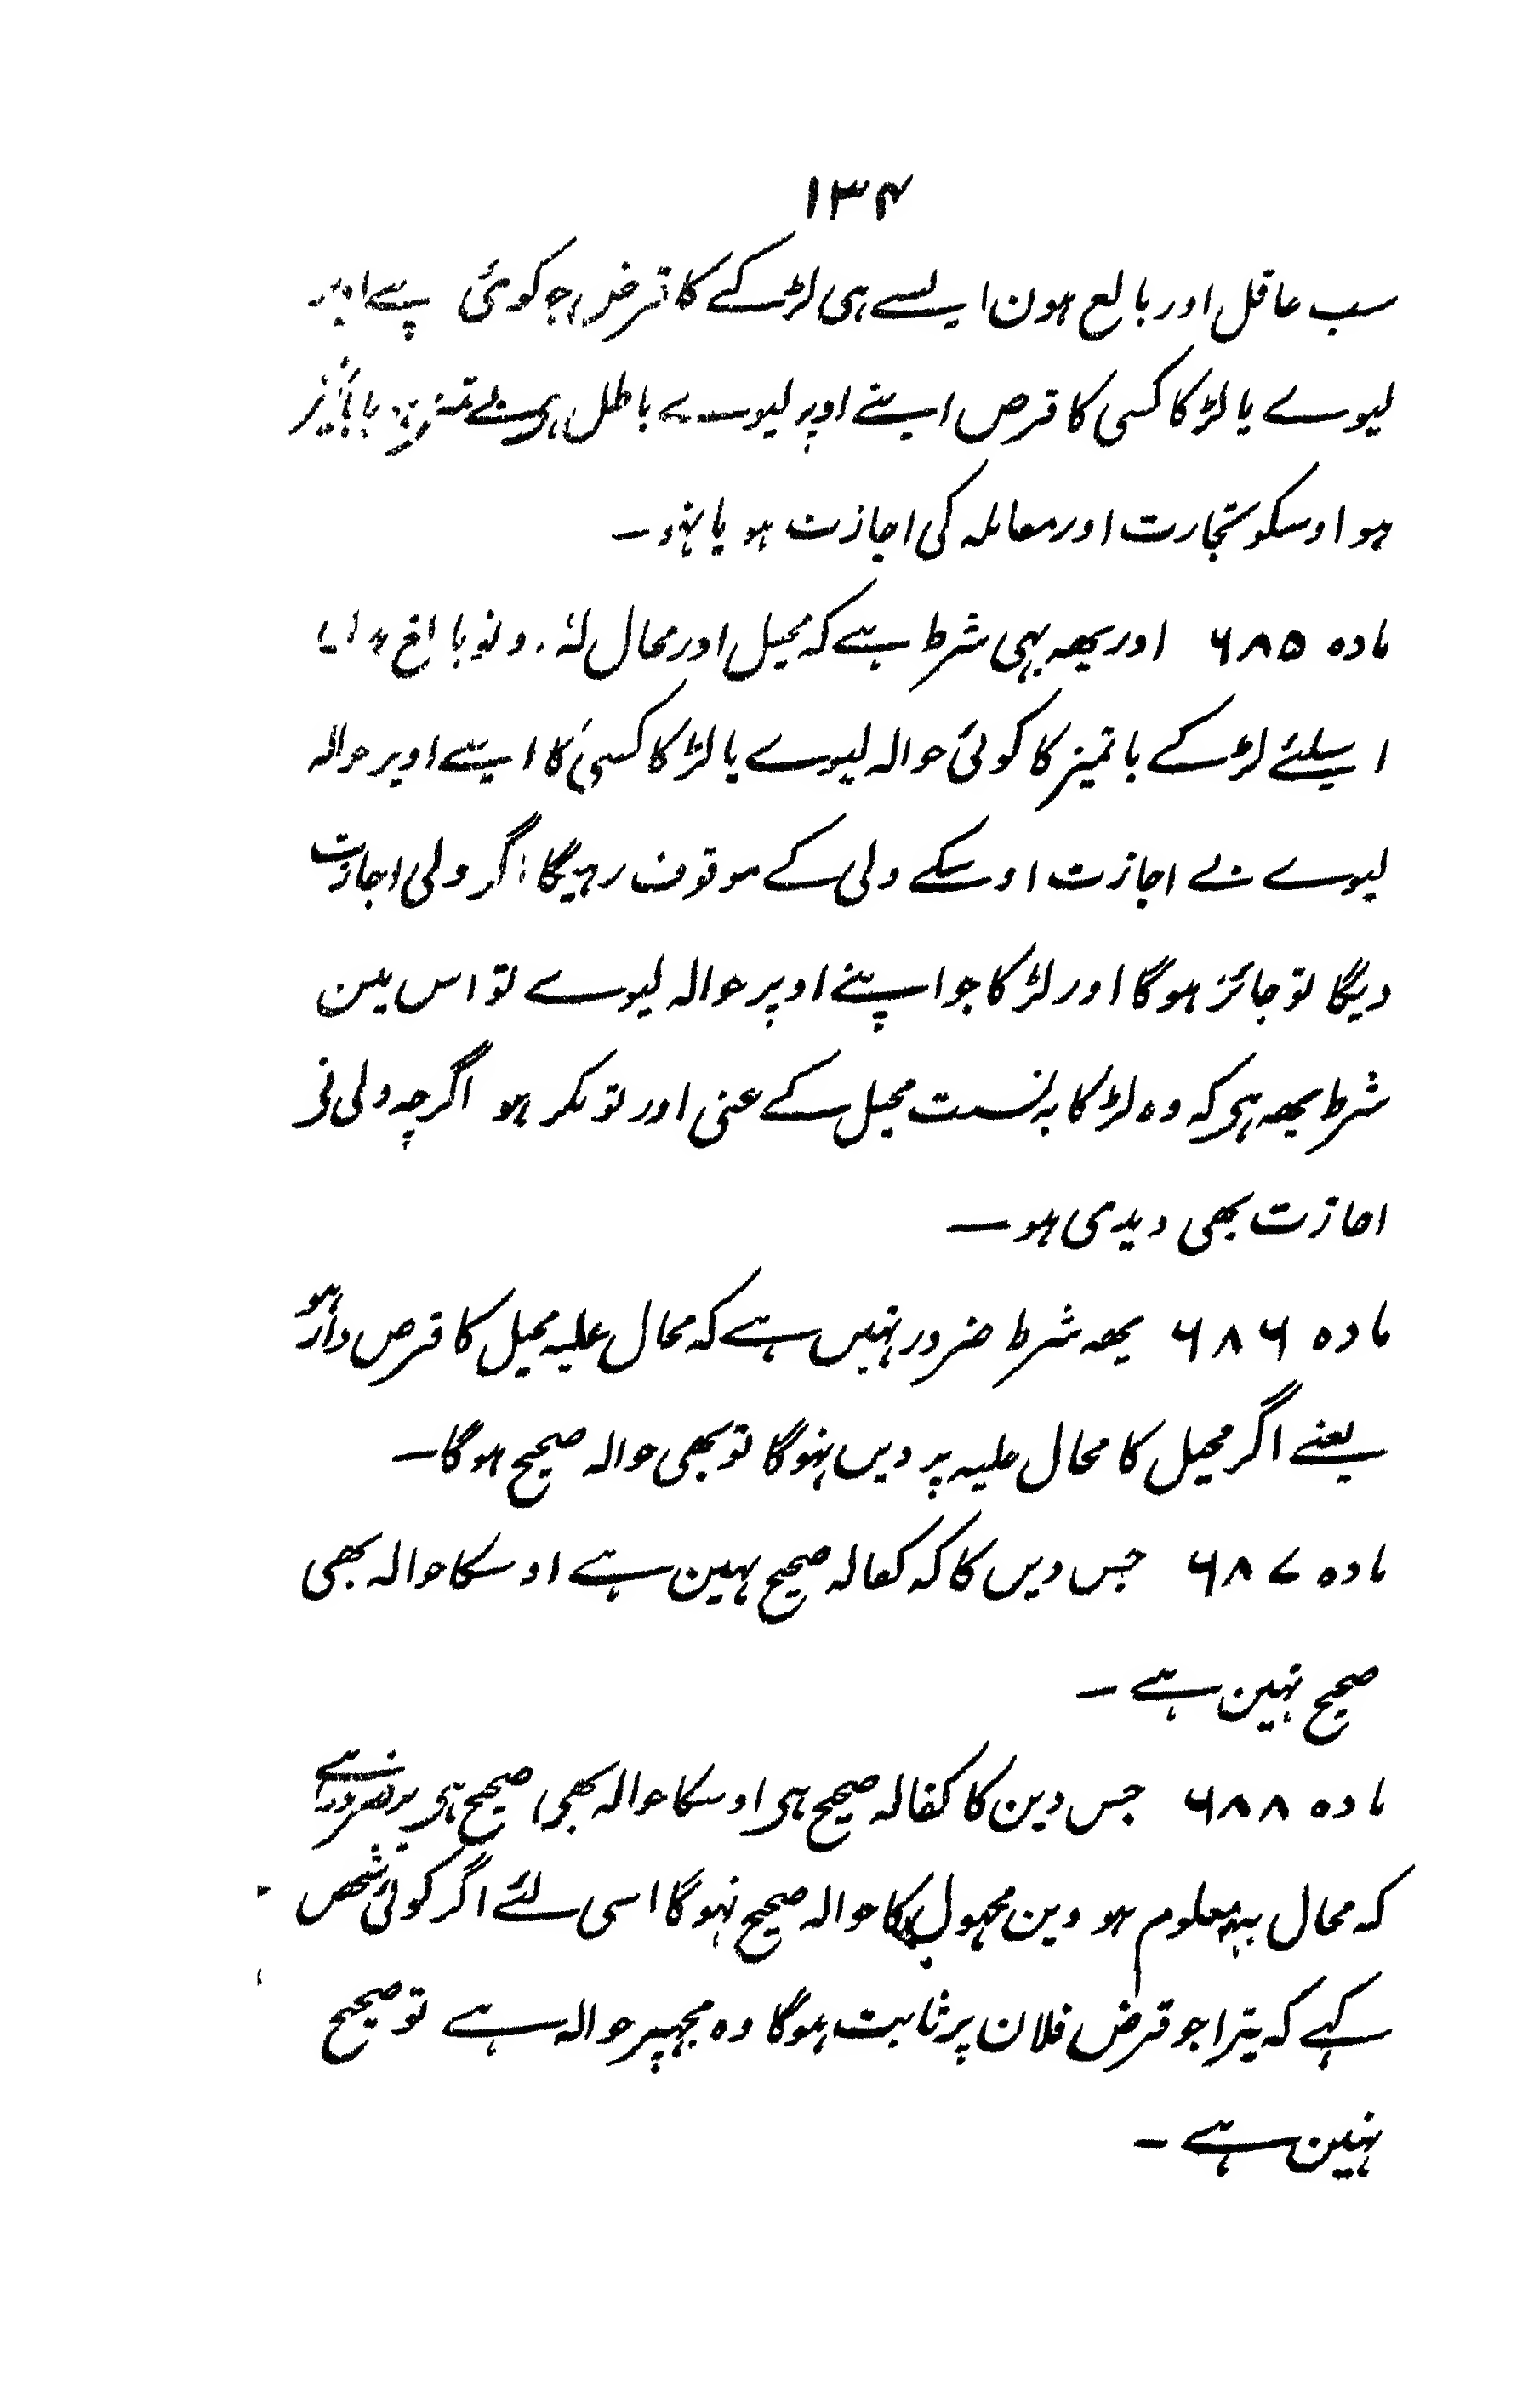 ۱۳۴
سب عاقل اور بالع ہون ایسے ہی لڑکے کا قرض جو کوئی اپنے اوپر
لیوے یا لڑکا کسی کا قرض اپنے اوپر لیوے باطل ہی بے تمیز ہو یا باتمیز
ہو اوسکو تجارت اور معاملہ کی اجازت ہو یا نہو ـ
مادہ ۶۸۵ اور یھہ بہی شرط ہے کہ محیل اور محال لہ دونو بالغ
ایسلئے لڑکے باتمیز کا کوئی حوالہ لیوے یا لڑکا کسی کا اپنے اوپر حوالہ
لیوے بے اجازت اوسکے ولی کے موقوف رہیگا اگر ولی اجازت
دیگا تو جائز ہوگا اور لڑکا جو اپنے اوپر حوالہ لیوے تو اس مین
شرط یھہ ہی کہ وہ لڑکا بہ نسبت محیل کے غنی اور تونگر ہو اگرچہ ولی نی
اجازت بھی دیدی ہو ـ
مادہ ۶۸۶ یھہ شرط ضرور نہیں ہے کہ محال علیہ محیل کا قرض دار ہو
یعنے اگر محیل کا محال علیہ پر دین نہوگا تو بھی حوالہ صحیح ہوگا ـ
مادہ ۶۸۷ جس دین کا کہ کفالہ صحیح نہین ہے اوسکا حوالہ بھی
صحیح نہین ہے ـ
مادہ ۶۸۸ جس دین کا کفالہ صحیح ہی اوسکا حوالہ بھی صحیح ہی پر ضرور ہے
کہ محال بہ معلوم ہو دین مجہول کا حوالہ صحیح نہوگا اسی لئے اگر کوئی شخص
کہے کہ تیرا جو قرض فلان پر ثابت ہوگا وہ مجہپر حوالہ ہے تو صحیح
نہین ہے ـ